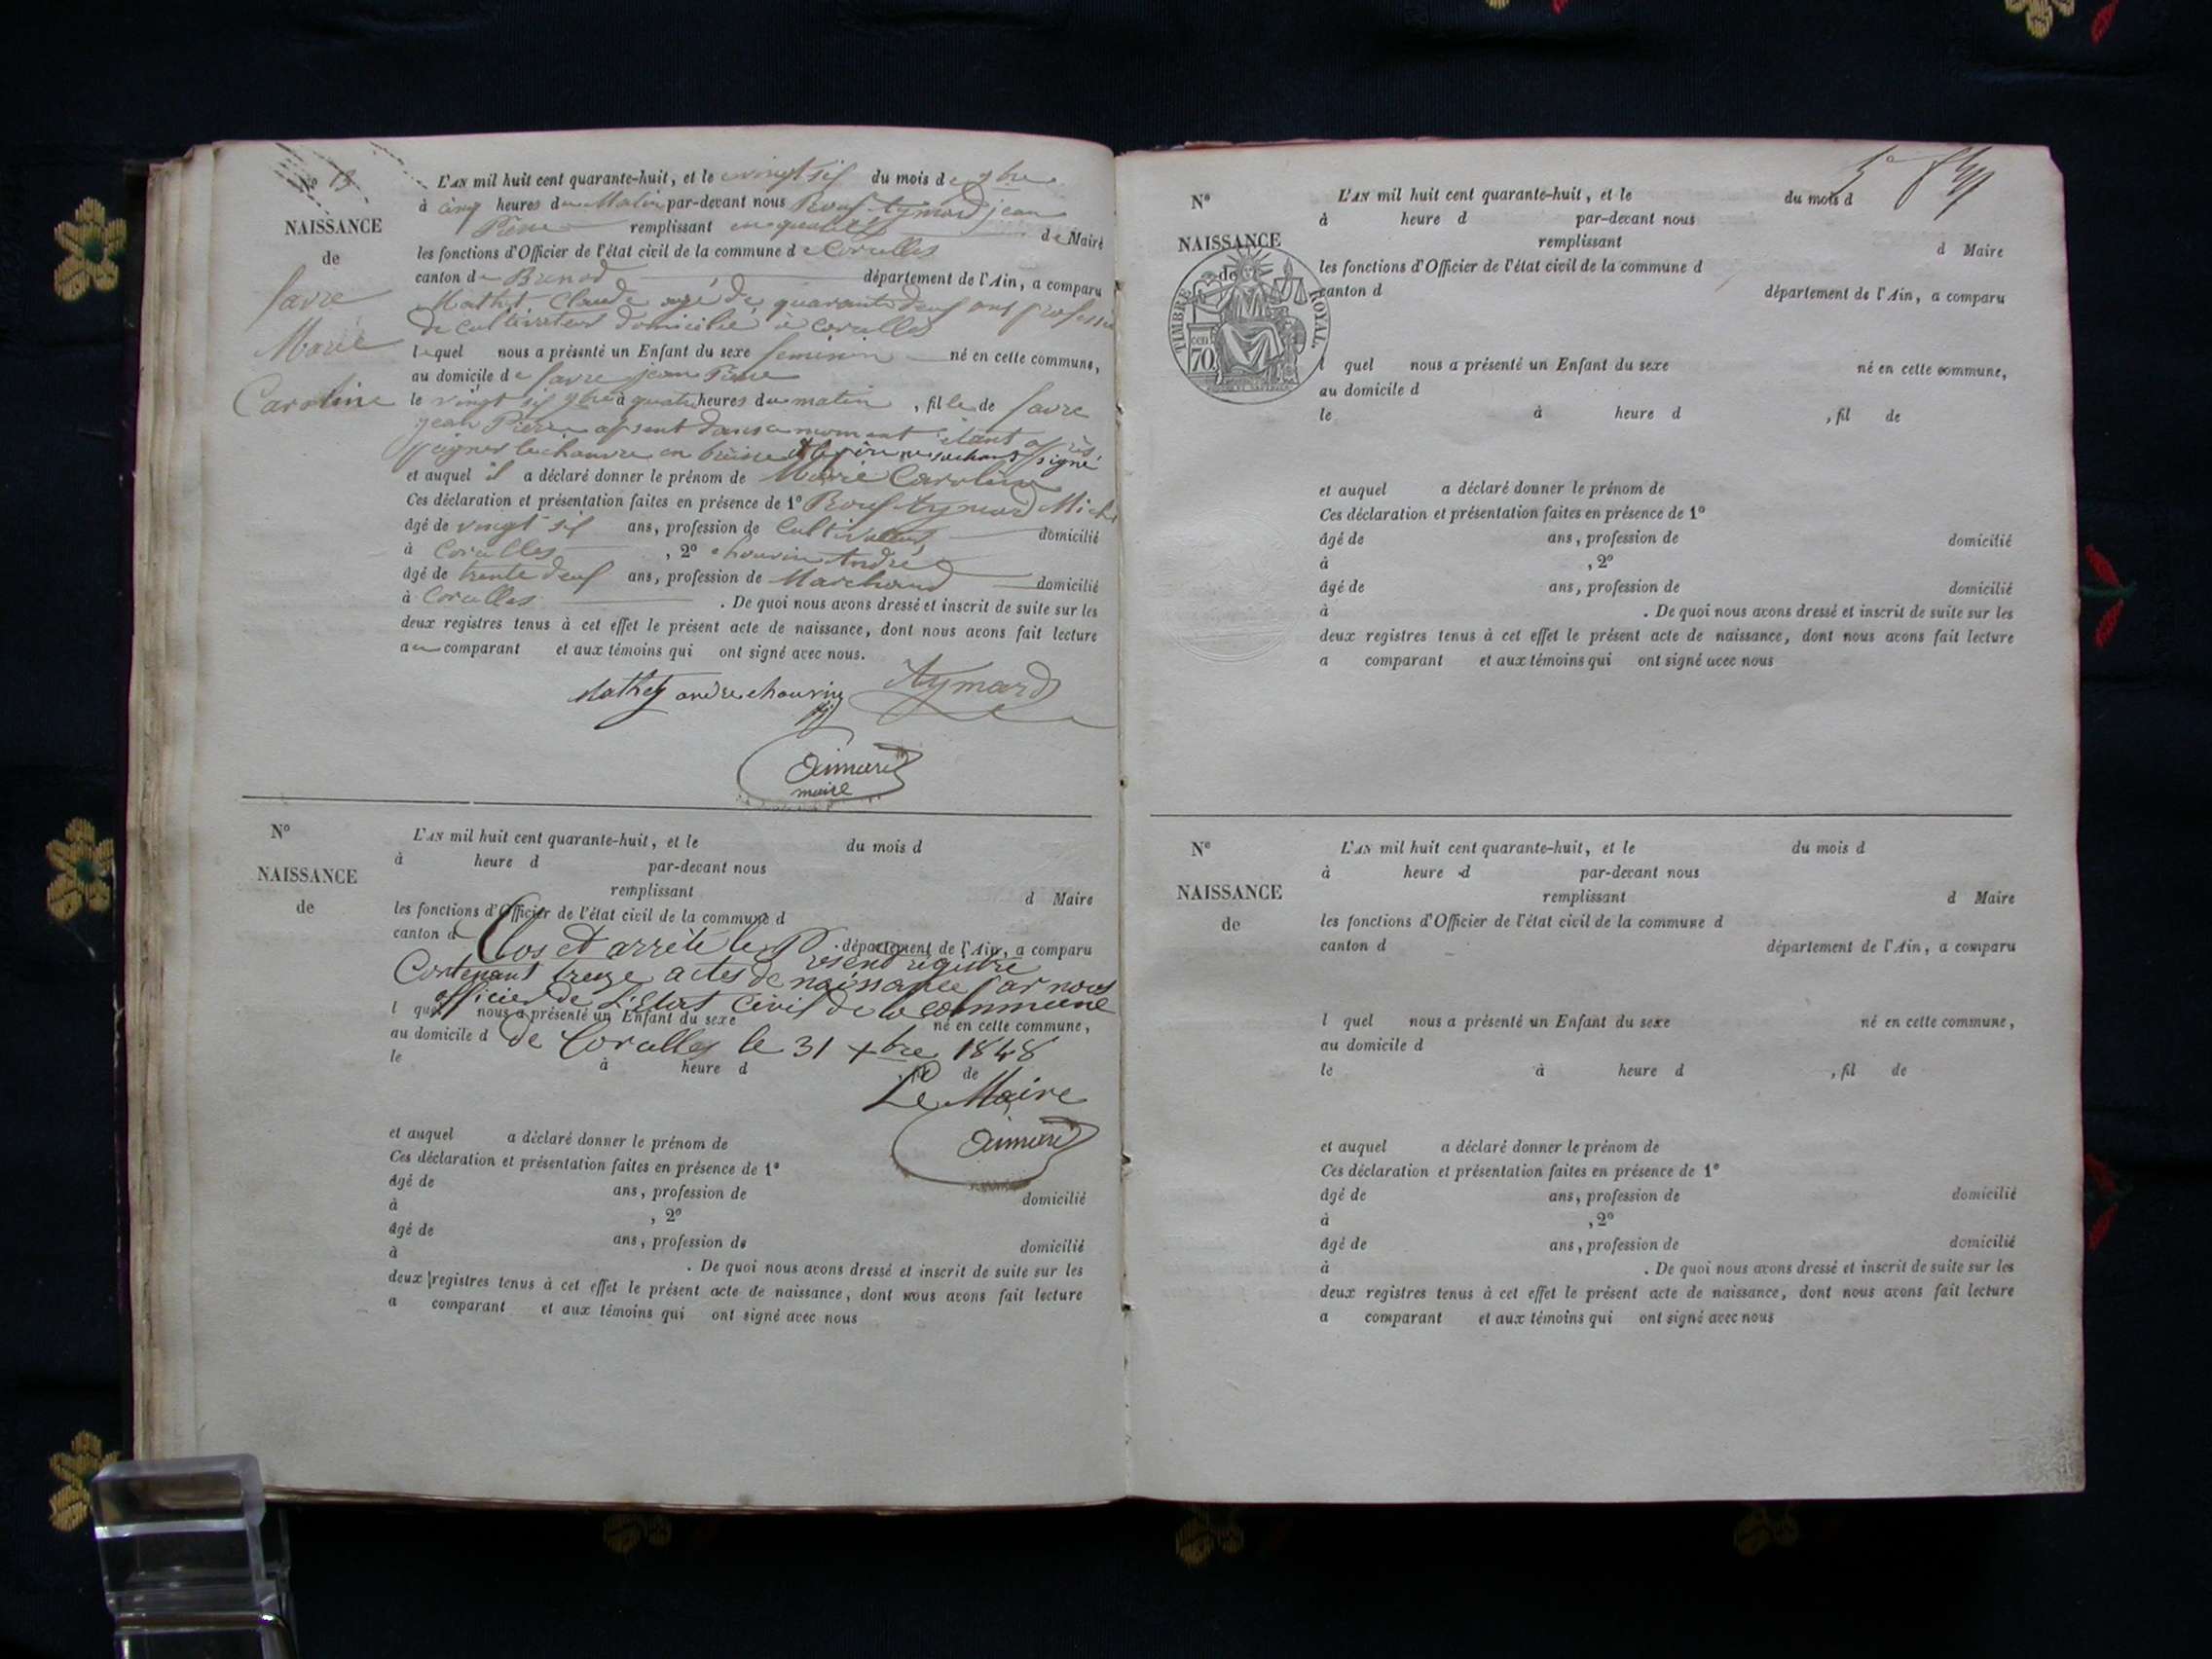 Nº 13
NAISSANCE
de
favre
Marie
Caroline
L'AN mil huit cent quarante-huit, et le vingt six du mois de 9bre
à cinq heures du Matin par-devant nous Roux Aymard jean
Pierre remplissant en qualité de Maire
les fonctions d'Officier de l'état civil de la commune de Corcelles
canton de Brenod département de l'Ain, a comparu
Mathet Claude agé de quarante deux ans profession
de cultivateur domicilié à Corcelles
lequel nous a présenté un Enfant du sexe feminin né en cette commune,
au domicile de favre jean Pierre
le vingt six 9bre à quatre heures du matin , fille de favre
jean Pierre absent dans ce moment étant après
peigner le chanvre en et le père ne sachant signé
et auquel il a déclaré donner le prénom de Marie Caroline
Ces déclaration et présentation faites en présence de 1º Roux Aymard Michel
âgé de vingt six ans, profession de Cultivateur domicilié
à Corcelles , 2º chouvin André
âgé de trente deux ans, profession de Marchand domicilié
à Corcelles . De quoi nous avons dressé et inscrit de suite sur les
deux registres tenus à cet effet le présent acte de naissance, dont nous avons fait lecture
au comparant et aux témoins qui ont signé avec nous.
Mathet andre chouvin Aymard
Aimard
maire
Nº
NAISSANCE
de
L'AN mil huit cent quarante-huit, et le du mois d
à heure d par-devant nous
remplissant d Maire
les fonctions d'Officier de l'état civil de la commune d
canton d département de l'Ain, a comparu
Clos et arrêté le Present régistre
Contenant treize actes de naissance par nous
officier de L'Etat Civil de la commune
l quel nous a présenté un Enfant du sexe né en cette commune,
au domicile d
de Corcelles le 31 xbre 1848
le à heure d , fil de
Le Maire
Aimard
et auquel a déclaré donner le prénom de
Ces déclaration et présentation faites en présence de 1º
âgé de ans, profession de domicilié
à , 2º
âgé de ans, profession de domicilié
à . De quoi nous avons dressé et inscrit de suite sur les
deux registres tenus à cet effet le présent acte de naissance, dont nous avons fait lecture
a comparant et aux témoins qui ont signé avec nous
Nº
NAISSANCE
de
TIMBRE ROYAL.
cen
70
L'AN mil huit cent quarante-huit, et le du mois d
à heure d par-devant nous
remplissant d Maire
les fonctions d'Officier de l'état civil de la commune d
canton d département de l'Ain, a comparu
l quel nous a présenté un Enfant du sexe né en cette commune,
au domicile d
le à heure d , fil de
et auquel a déclaré donner le prénom de
Ces déclaration et présentation faites en présence de 1º
âgé de ans, profession de domicilié
à , 2º
âgé de ans, profession de domicilié
à . De quoi nous avons dressé et inscrit de suite sur les
deux registres tenus à cet effet le présent acte de naissance, dont nous avons fait lecture
a comparant et aux témoins qui ont signé avec nous
Nº
NAISSANCE
de
L'AN mil huit cent quarante-huit, et le du mois d
à heure d par-devant nous
remplissant d Maire
les fonctions d'Officier de l'état civil de la commune d
canton d département de l'Ain, a comparu
l quel nous a présenté un Enfant du sexe né en cette commune,
au domicile d
le à heure d , fil de
et auquel a déclaré donner le prénom de
Ces déclaration et présentation faites en présence de 1º
âgé de ans, profession de domicilié
à , 2º
âgé de ans, profession de domicilié
à . De quoi nous avons dressé et inscrit de suite sur les
deux registres tenus à cet effet le présent acte de naissance, dont nous avons fait lecture
a comparant et aux témoins qui ont signé avec nous